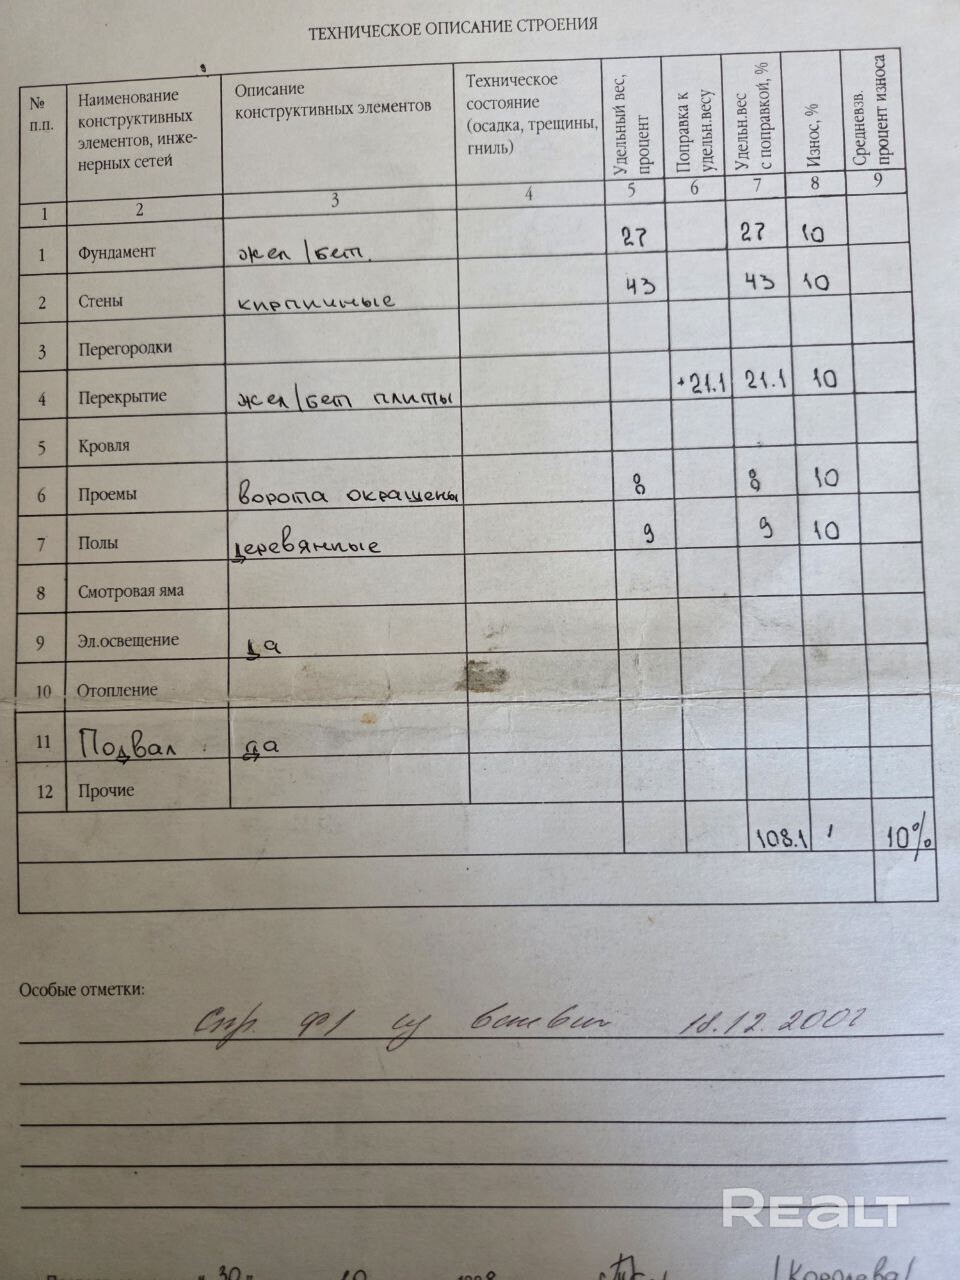 ТЕХНИЧЕСКОЕ ОПИСАНИЕ СТРОЕНИЯ
№ п.п. Наименование конструктивных элементов, инже-нерных сетей Описание конструктивных элементов Техническое состояние (осадка, трещины, гниль) Удельный вес, процент Поправка к удельн.весу Удельн.вес с поправкой, % Износ, % Средневзв. процент износа
1 2 3 4 5 6 7 8 9
1 Фундамент жел/бет. 27 27 10
2 Стены кирпичные 43 43 10
3 Перегородки
4 Перекрытие жел/бет плиты +21.1 21.1 10
5 Кровля
6 Проемы ворота окрашены 8 8 10
7 Полы деревянные 9 9 10
8 Смотровая яма
9 Эл.освещение да
10 Отопление
11 Подвал да
12 Прочие
108.1 10%
Особые отметки:
Спр. Ф1 18.12.2002
REALT
"30" 10 1998 /Королева/